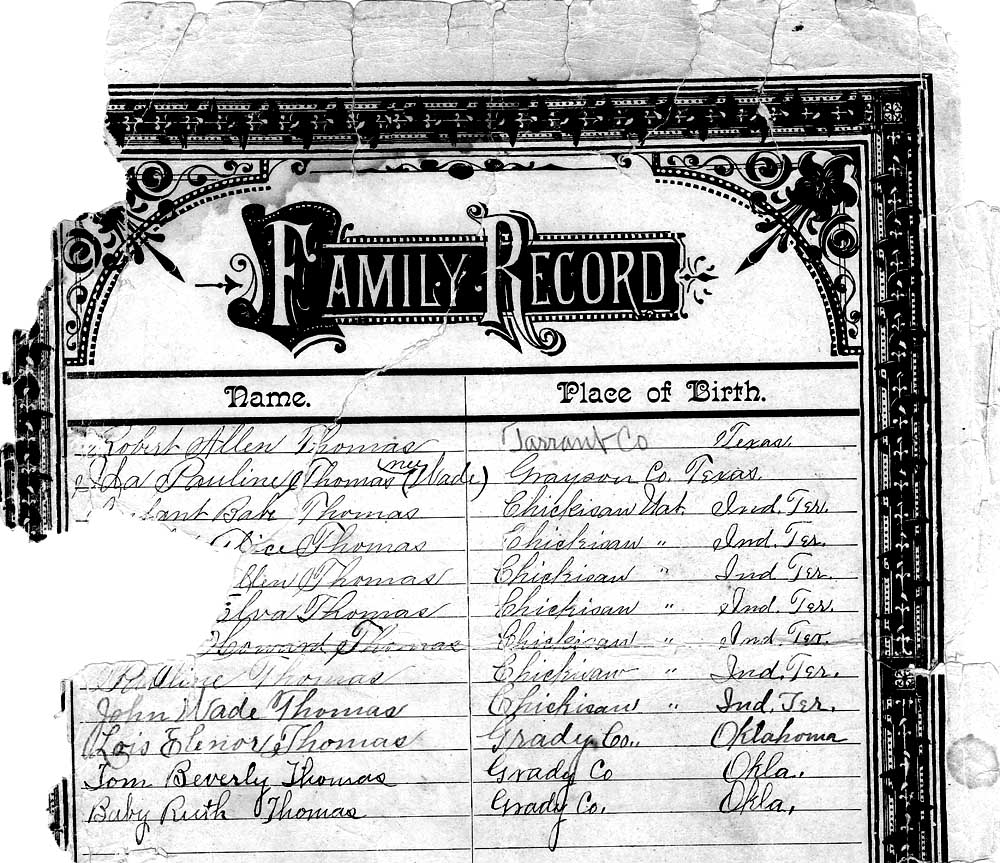 Family Record
Name. Place of Birth.
Robert Allen Thomas Tarrant Co Texas
Ida Pauline Thomas (nee Wade) Grayson Co. Texas.
Infant Babe Thomas Chickisaw Nat. Ind. Ter.
Alice Thomas Chickisaw " Ind. Ter.
llen Thomas Chickisaw " Ind Ter.
elva Thomas Chickisaw " Ind. Ter.
Howard Thomas Chickisaw " Ind Ter
Thomas Chickisaw " Ind. Ter.
John Wade Thomas Chickisaw " Ind. Ter.
Lois Elenor Thomas Grady Co., Oklahoma
Tom Beverly Thomas Grady Co Okla.
Baby Ruth Thomas Grady Co. Okla.